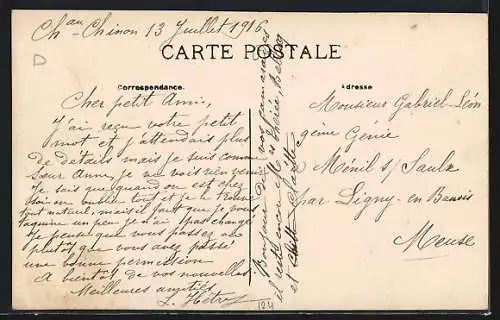 Chau-Chinon 13 Juillet 1916
D
CARTE POSTALE
Correspondance.
Adresse
Cher petit Ami,
J'ai reçu votre petit
mot et j'attendais plus
de détails mais je suis comme
Sœur Anne, je ne vois rien venir
Je sais que quand on est chez
soi on oublie tout et je le trouve
tout naturel, mais il faut que je vous
taquine un peu je n'ai pas changé
Je pense que vous passez ou
plutôt que vous avez passé
une bonne permission
A bientôt de vos nouvelles
Meilleures amitiés
L. Hétroy
Bonjour de vos camarades
et
et Charlotte
Monsieur Gabriel-Léon
9ème Génie
Ménil s/ Saulx
par Ligny-en-Barrois
Meuse
124